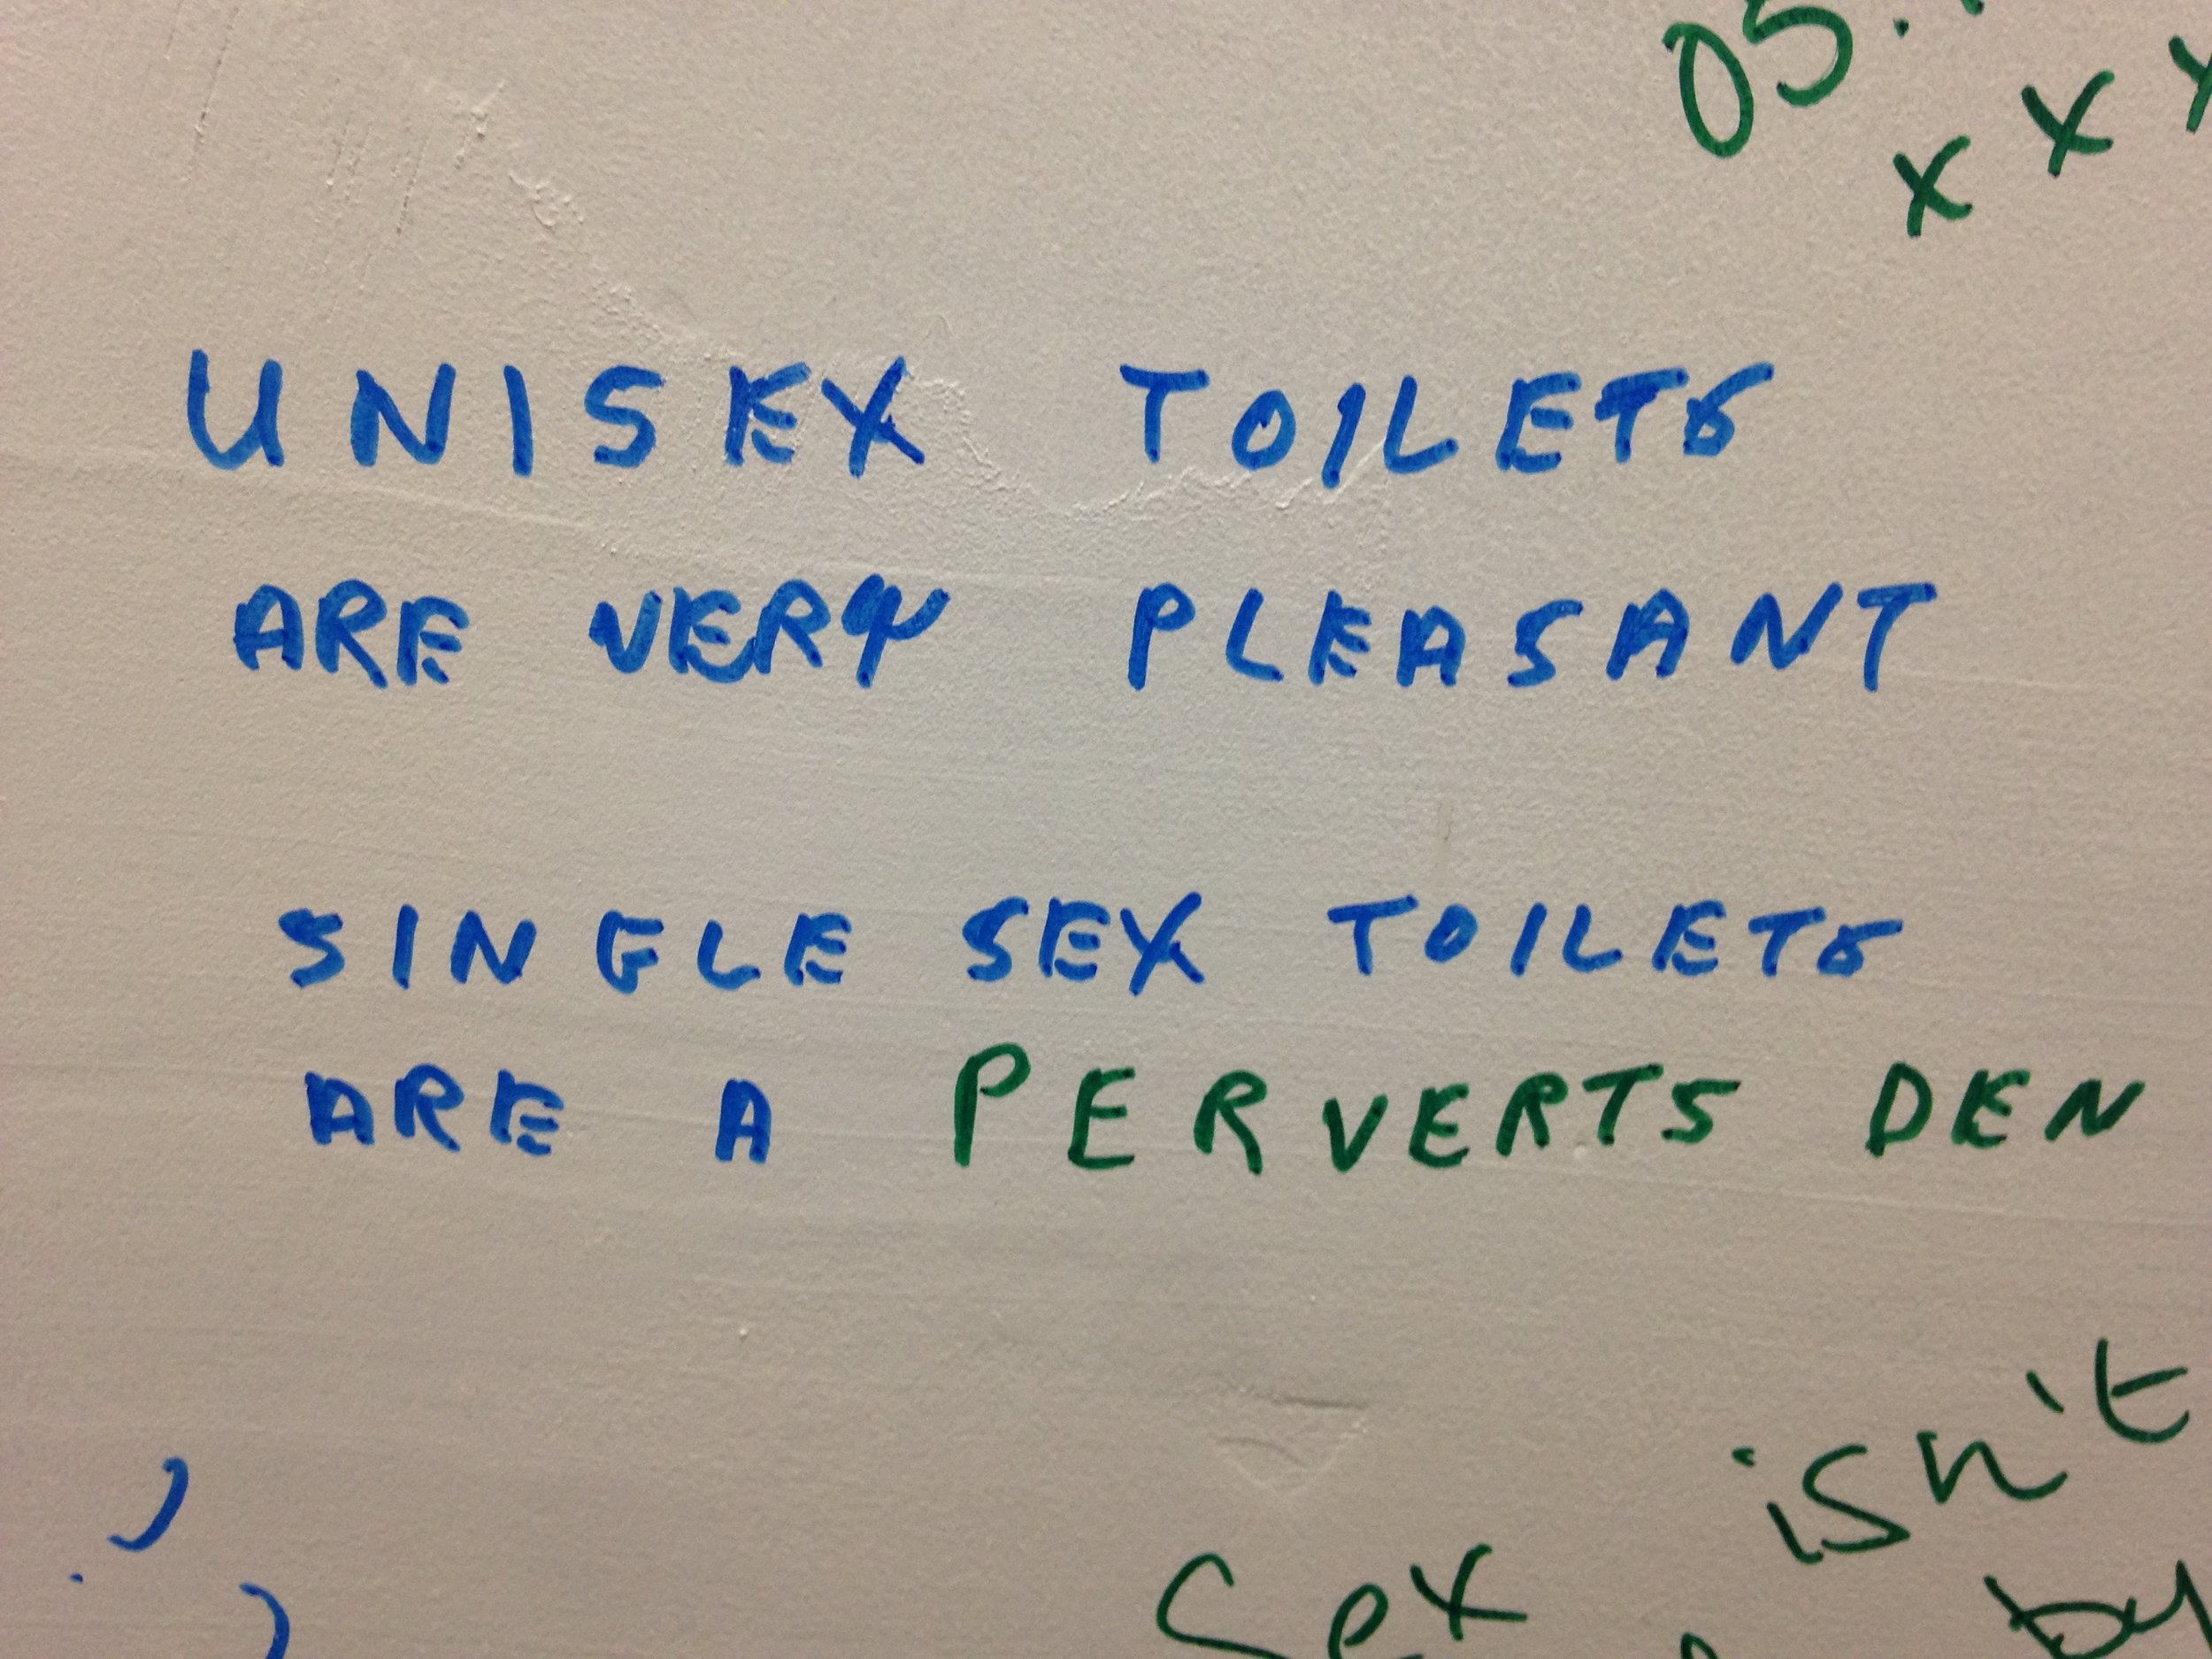 05
x x
UNISEX TOILETS
ARE VERY PLEASANT
SINGLE SEX TOILETS
ARE A PERVERTS DEN
isn't
Sex by